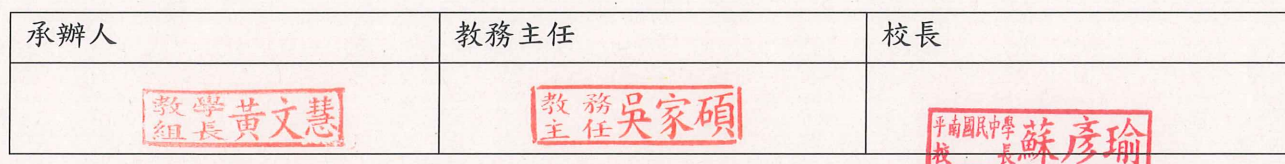 承辦人
教務主任
校長
教學組長黃文慧
教務主任吳家碩
平南國民中學校長蘇彥瑜